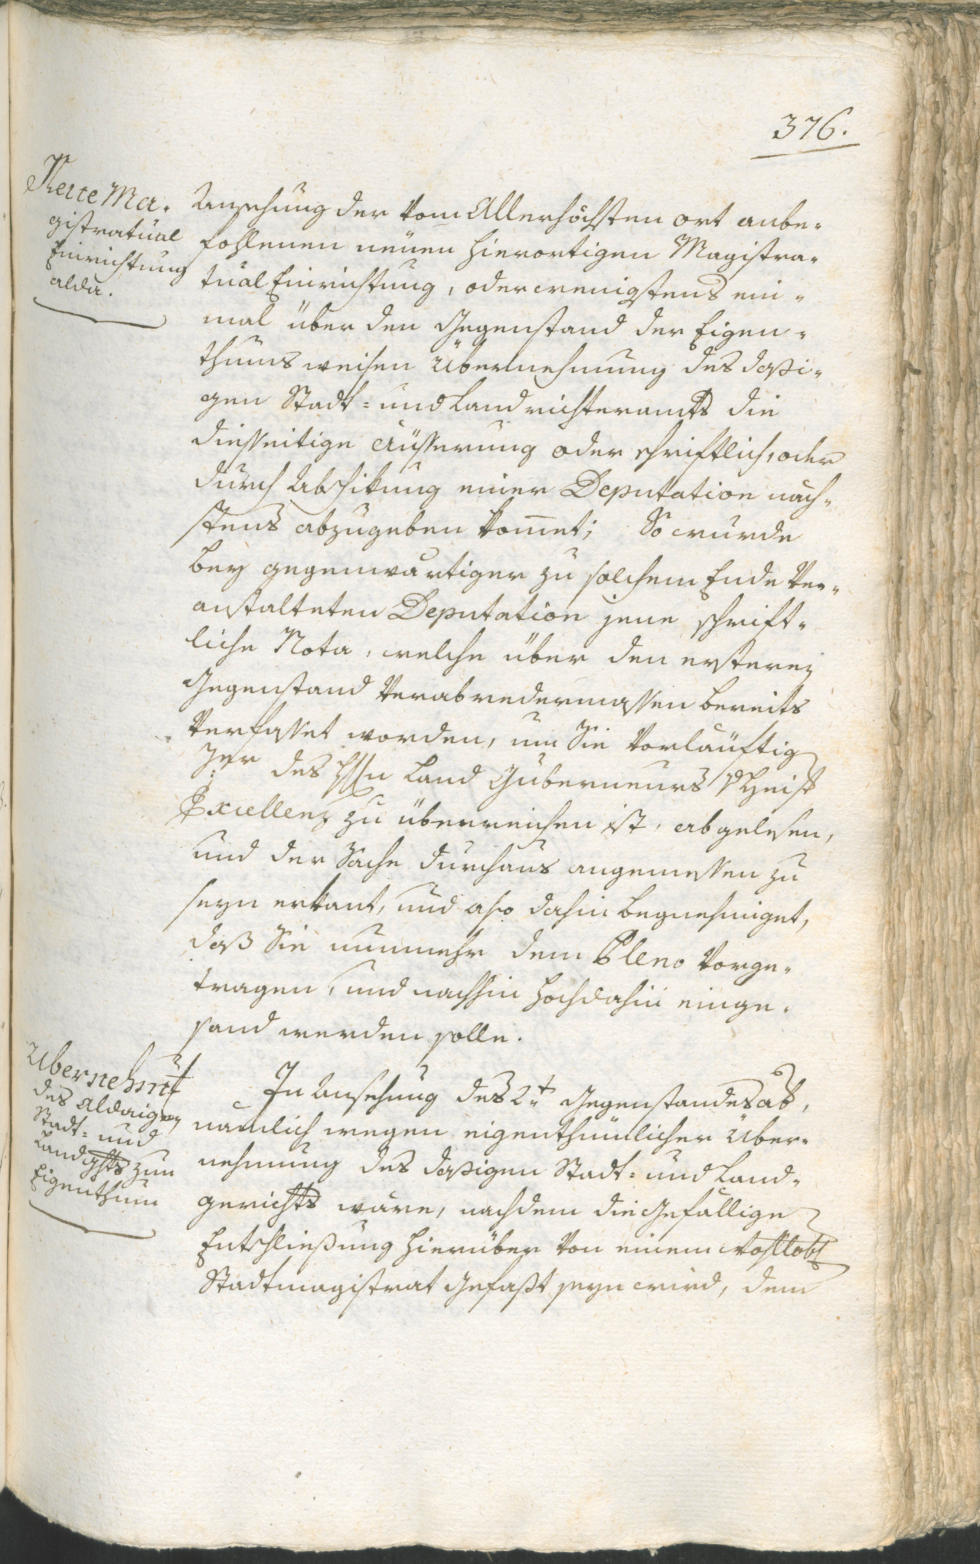 376.
Neue Ma-
gistratual
Einrichtung
alda.
Ansehung der vom Allerhöchsten ort anbe-
fohlenen neüen hierortigen Magistra-
tual Einrichtung, oder wenigstens ein-
mal über den Gegenstand der Eigen-
thums weisen Übernehmung des daßi-
gen Stadt- und Landrichteramts die
diesseitige Äüsserung oder schriftlich, oder
durch Abschikung einer Deputation näch-
stens abzugeben kom̄et; So wurde
bey gegenwärtiger zu solchem Ende ver-
anstalteten Deputation jene schrift-
liche Nota, welche über den ersteren
Gegenstand verabredermassen bereits
verfasset worden, um Sie vorläuftig
des Land Guberneurs
Excellenz zu überreichen ist, abgelesen,
und der Sache durchaus angemessen zu
seyn erkant, und also dahin begnehmiget,
daß Sie nunmehr dem Pleno vorge-
tragen, und nachhin hochdahin einge-
sand werden solle.
Übernehmg
des aldaigen
Stadt- und
Landghts zum
Eigenthum
In Ansehung des 2t Gegenstandes ab,
nämlich wegen eigenthümlicher Über-
nehmung des daßigen Stadt- und Land-
gerichts wäre, nachdem die gefällige
Entschließung hierüber von einem Wohllobl
Stadtmagistrat gefaßt seyn wird, dem